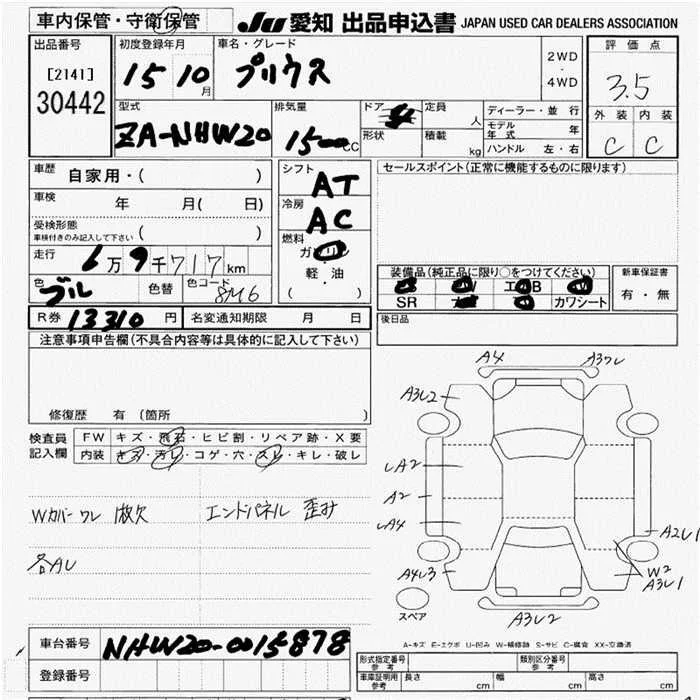 車内保管・守衛保管 JU 愛知 出品申込書 JAPAN USED CAR DEALERS ASSOCIATION
出品番号 初度登録年月 車名・グレード 2WD・4WD 評価点
[2141] 15 10月 プリウス 3.5
30442
型式 排気量 ドア 定員 人 ディーラー・並行 外装 内装
ZA-NHW20 1500CC 4 モデル年式 年
形状 積載 kg ハンドル 左・右 C C
車歴 自家用・( ) シフト AT セールスポイント(正常に機能するものに限ります)
車検 年 月( 日) 冷房 AC
受検形態 ( )
車検付きのみ記入して下さい
燃料
走行 6万9千717km 軽・油
( )
色 ブル 色替 色コード 8M6
装備品(純正品に限り○をつけてください) 新車保証書
SR カワシート 有・無
R券 13310円 名変通知期限 月 日 後日品
注意事項申告欄(不具合内容等は具体的に記入して下さい)
修復歴 有 (箇所 )
検査員記入欄 FW キズ・飛石・ヒビ割・リペア跡・X要
内装 キズ・汚レ・コゲ・穴・スレ・キレ・破レ
Wカバー ワレ 1枚欠 エンドパネル 歪み
各AU
A4 A3ワレ
A3U2
UA2
A2
UA4
A4U3
A2U1
W2
A3U1
A3U2
スペア
A-キズ E-エクボ U-凹み W-補修跡 S-サビ C-腐食 XX-交換済
車台番号 NHW20-0015878
登録番号
形式指定番号 参考 類別区分番号 参考
車庫証明用 参考 長さ cm 幅 cm 高さ cm